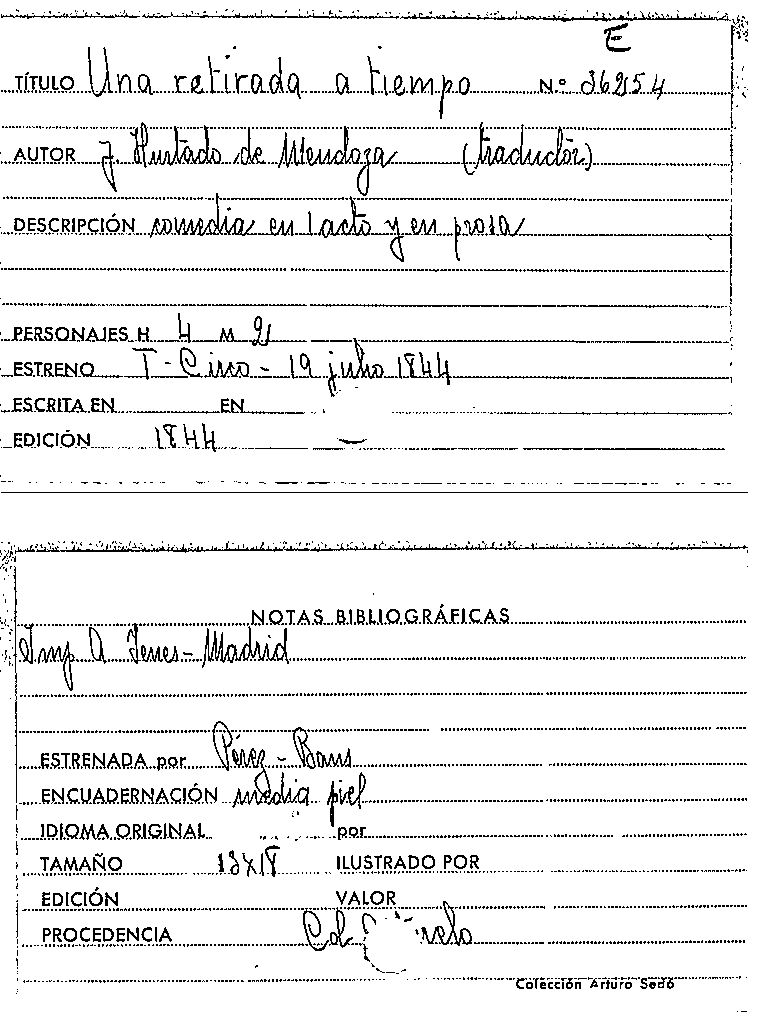 E
TÍTULO Una retirada a tiempo N.º 36254
AUTOR J. Hurtado de Mendoza (traductor)
DESCRIPCIÓN comedia en 1 acto y en prosa
PERSONAJES H 4 M 2
ESTRENO T-Circo-19 julio 1844
ESCRITA EN EN
EDICIÓN 1844 —
NOTAS BIBLIOGRÁFICAS
Imp A Yenes-Madrid
ESTRENADA por Pérez-Baus
ENCUADERNACIÓN media piel
IDIOMA ORIGINAL por
TAMAÑO 13x18 ILUSTRADO POR
EDICIÓN VALOR
PROCEDENCIA Col.
Colección Arturo Sedó